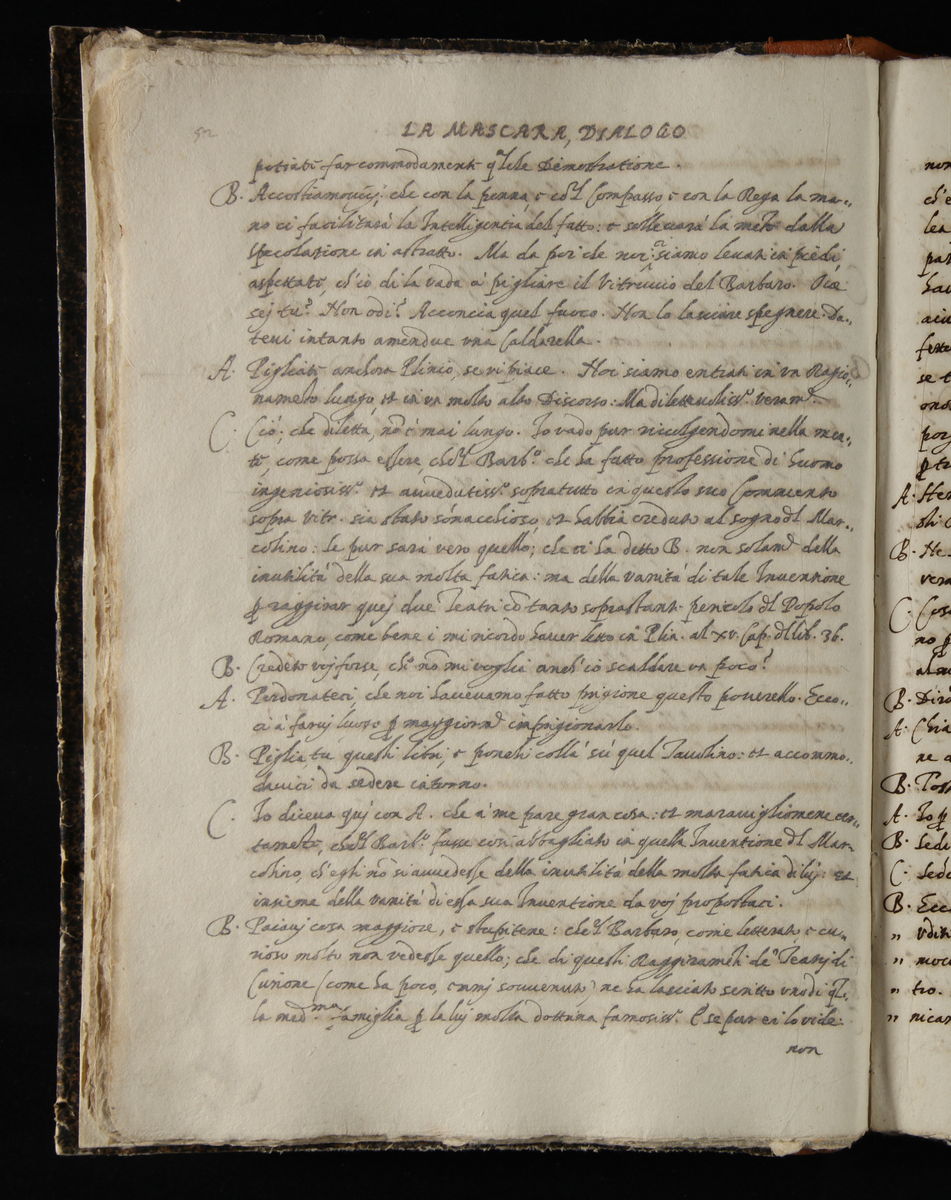 52
LA MASCARA, DIALOGO
potiate far commodamente qualche Demostratione.
B. Accostiamovici: che con la penna, e col Compasso e con la Rega la ma-
no ci facilitarà la Intelligentia del fatto: e sollevarà la mente dalla
specolatione in astratto. Ma da poi che noi ci siamo levati in piedi
aspettate ch'io di la vada à pigliare il Vitruvio del Barbaro.
sej tu? Non odi? Acconcia quel fuoco. Non lo lasciare spegnere. Da-
tevi intanto amendue una Caldarella.
A. Pigliate anchora Plinio, se vi piace. Noi siamo entrati in un Ragio-
namẽto lungo, et in un molto alto Discorso: Ma dilettevoliss.º veram.te
C. Ciò, che diletta, nõ è mai lungo. Io vado pur rivolgendomi nella men-
te, come possa essere che'l Barb.º che ha fatto professione di huomo
ingeniosiss.º et avvedutiss.º sopratutto in questo suo Commento
sopra Vitr. sia stato sonacchioso, et habbia creduto al sogno del Mar-
colino: se pur sarà vero quello; che ci ha detto B. non solam.te della
inutilità della sua molta fatica: ma della vanità di tale Inventione
p raggirar quej due Teatri cõ tanto soprastante pericolo del Popolo
Romano, come bene i mi ricordo haver letto in Plin. al XV. Cap. del lib. 36.
B. Credete voj forse, che nõ me voglia anch'io scaldare un poco?
A. Perdonateci, che noi havevamo fatto prigione questo poverello. Ecco-
ci à farvj luogo p maggiorm.te imprigionarlo.
B. Piglia tu questi libri, e poneli collà sù quel Tavolino: et accommo-
davici da sedere intorno.
C. Io diceva quj con A. che à me pare gran cosa: et maravigliomene cer-
tamẽte, che'l Barb.º fusse così abbagliato in quella Inventione del Mar-
colino, ch'egli nõ si avvedesse della inutilità della molta fatica di luj: et
insieme della vanità di essa sua Inventione da voj propostaci.
B. Paiavj cosa maggiore, e stupitene: che'l Barbaro, come letterato e cu-
rioso molto non vedesse quello; che di questi Raggiramẽti de' Teatrj di
Curione (come ha poco, emmj sovvenuto) ne ha lasciato scritto uno di
la med.ma Famiglia p la luj molta dottrina famosiss.º E se pur ei lo vide:
non